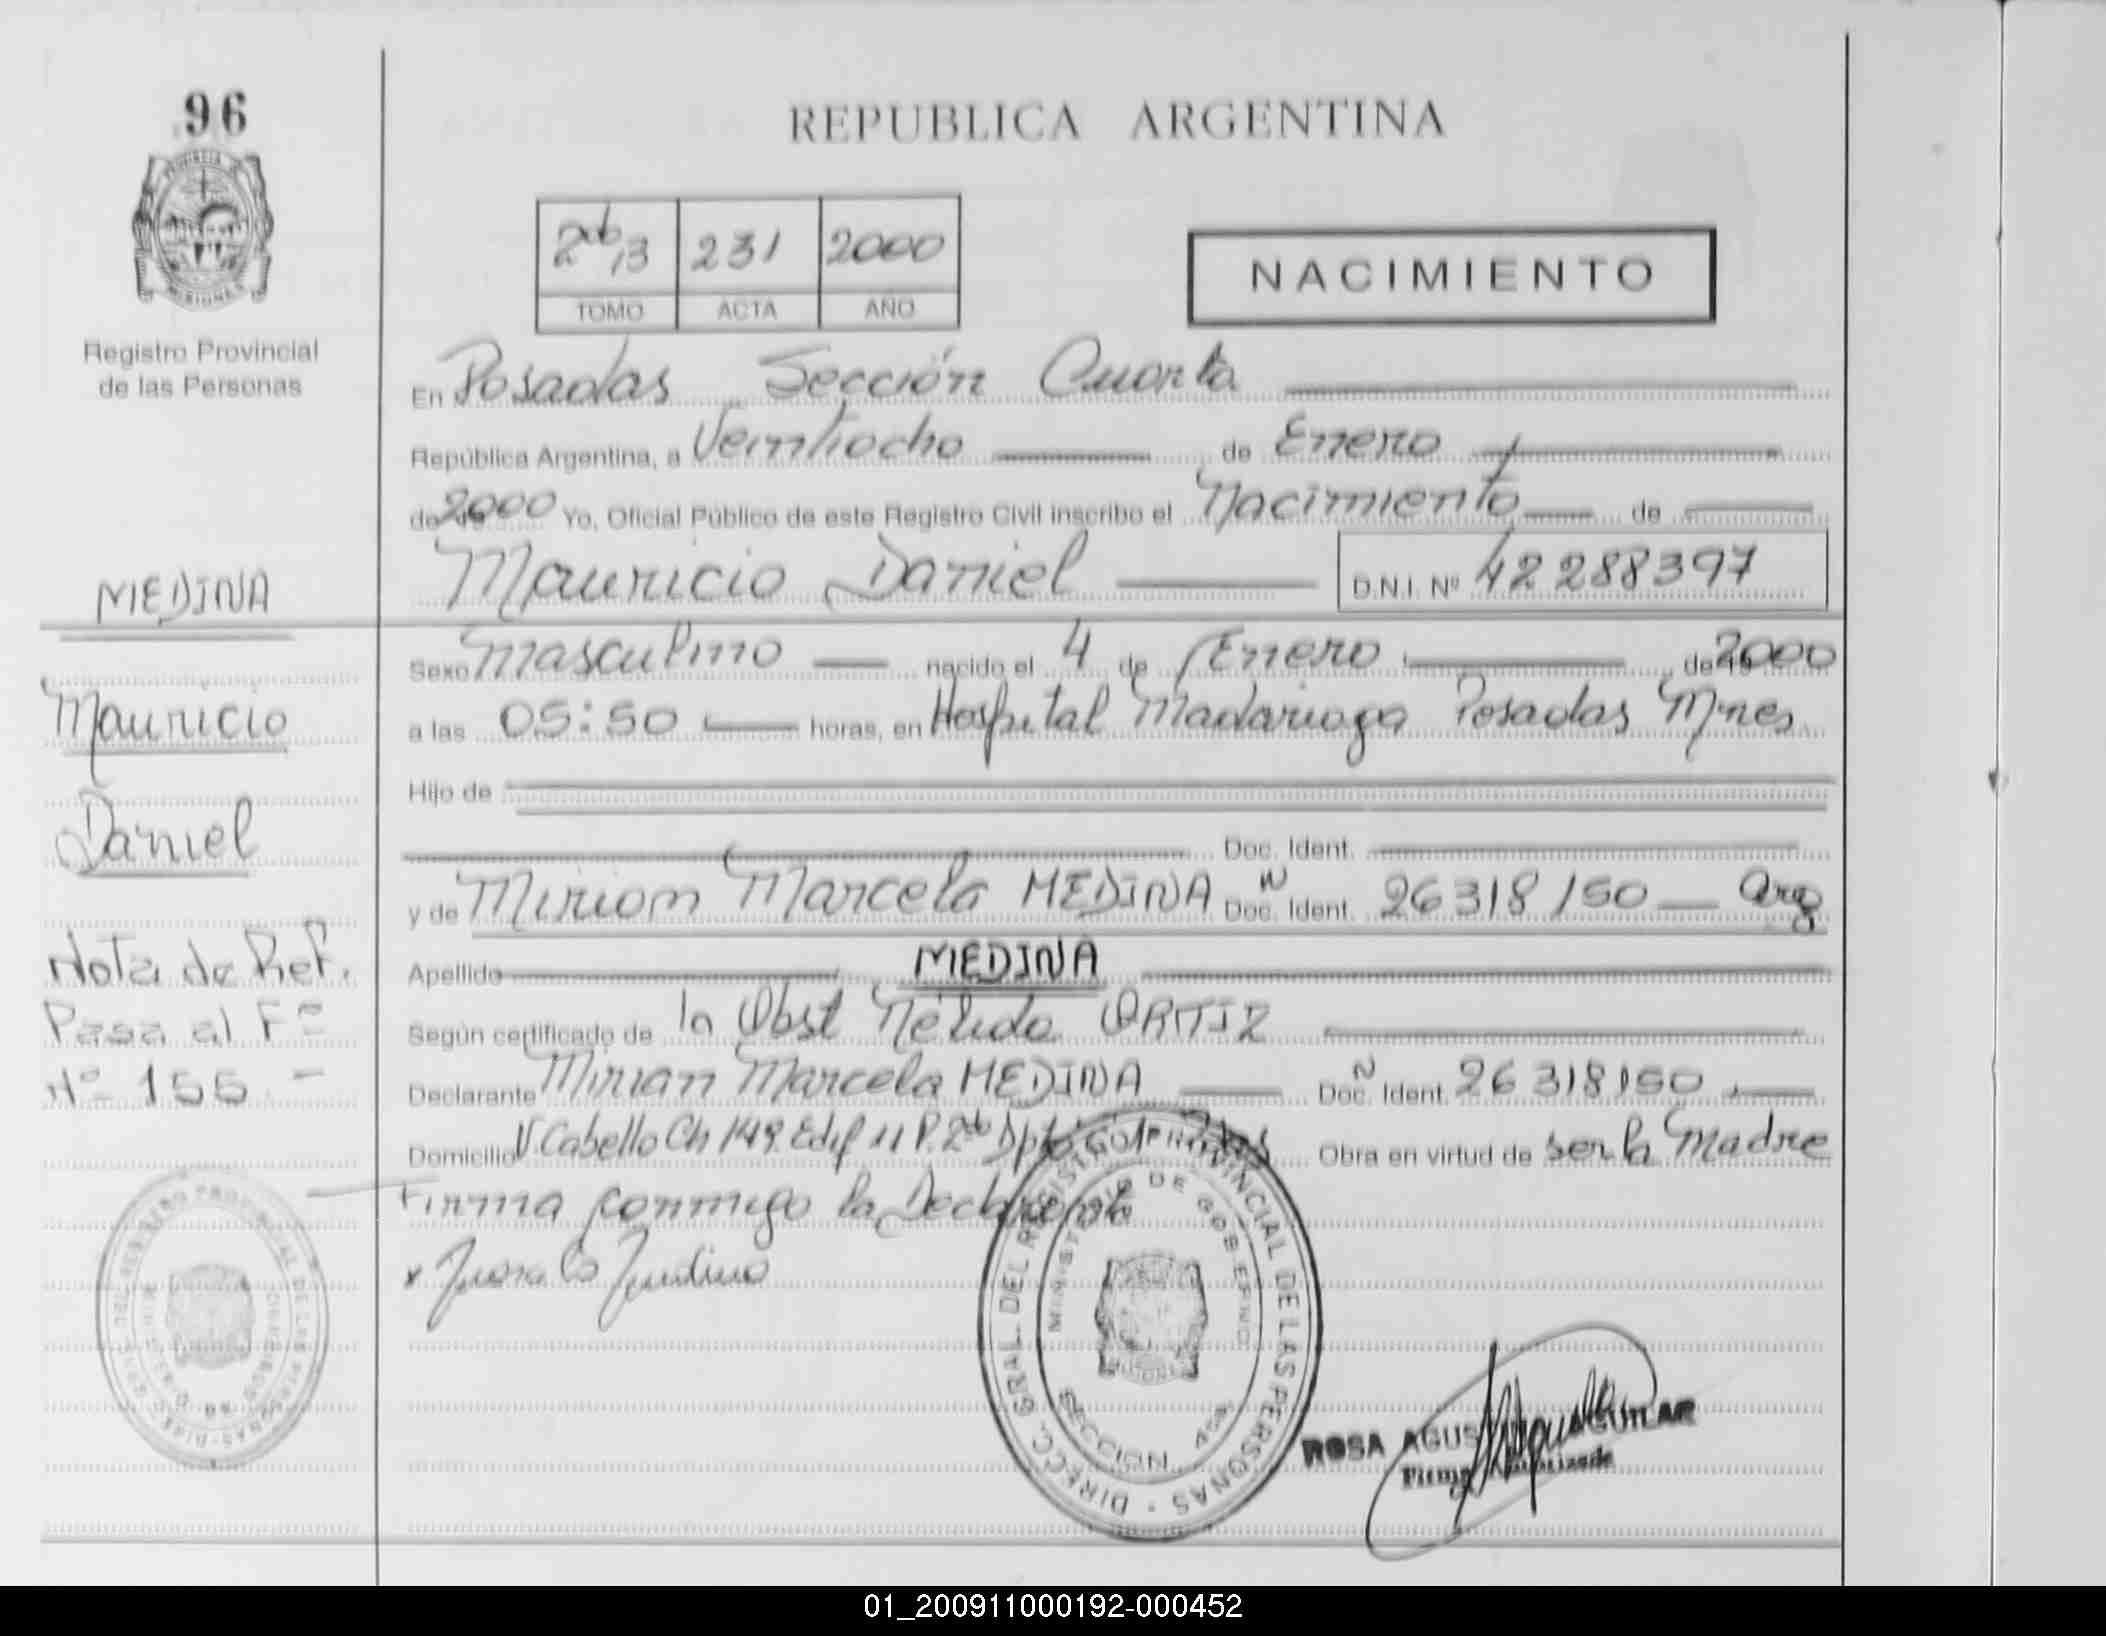 96
REPUBLICA ARGENTINA
2do 13 231 2000
TOMO ACTA AÑO
NACIMIENTO
Registro Provincial
de las Personas
En Posadas Sección Cuarta
República Argentina, a Veintiocho de Enero
de 2000 Yo, Oficial Público de este Registro Civil inscribo el Nacimiento de
Mauricio Daniel D.N.I. Nº 42288397
MEDINA
Mauricio
Daniel
Sexo Masculino nacido el 4 de Enero de 2000
a las 05:50 horas, en Hospital Madariaga Posadas Mnes.
Hijo de
Doc. Ident.
y de Miriam Marcela MEDINA Doc. Ident. 26318150 Arg
Apellido MEDINA
Según certificado de la Obst Nélida ORTIZ
Declarante Mirian Marcela MEDINA Doc. Ident. 26318150
Domicilio V. Cabello Ch 149 Edif 11 P. 2do Dpto Obra en virtud de ser la Madre
Firma conmigo la Declarante
Nota de Ref.
Pasa al Fº
Nº 155.-
DIRECC. GRAL. DEL REGISTRO PROVINCIAL DE LAS PERSONAS
MINISTERIO DE GOBIERNO
SECCION 4ta
MISIONES
ROSA AGUS AGUILAR
Firma Autorizada
01_200911000192-000452